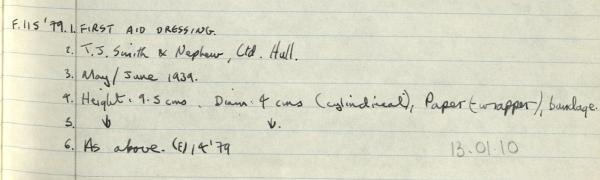 F.115'79. 1. FIRST AID DRESSING.
2. T.J. Smith & Nephew, Ltd. Hull.
3. May/June 1939.
4. Height: 9.5 cms. Diam: 4 cms (cylindrical), Paper (-wrapper), bandage.
5. ↓ ↓.
6. As above. (E) 14'79 13.01.10